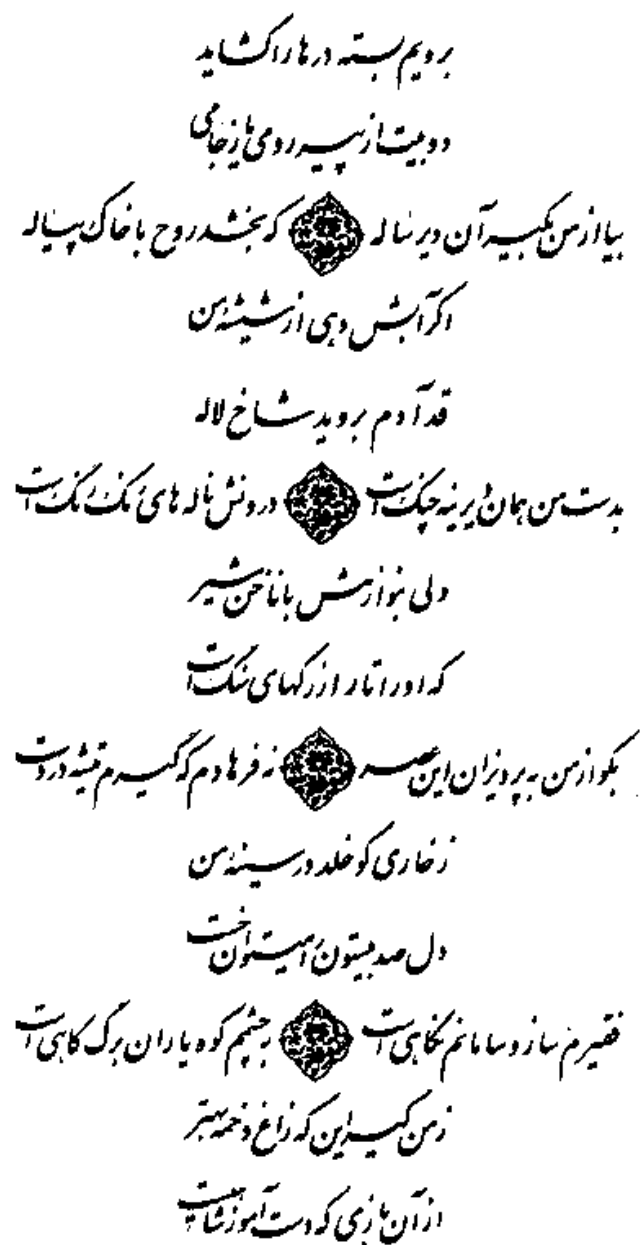 برویم بسته درها را کشاید
دو بیت از پیر رومی یا ز جامی
بیا از من بگیر آن دیر ساله که بخشد روح با خاک پیاله
اگر آبش دهی از شیشهٔ من
قد آدم بروید شاخ لاله
بدست من همان دیرینه چنگ است درونش ناله های رنگ رنگ است
ولی بنوازمش با ناخن شیر
که او را تار از رگهای سنگ است
بگو از من به پرویزان این عصر نه فرهادم که گیرم تیشه در دست
ز خاری کو خلد در سینهٔ من
دل صد بیستون را میتوان خست
فقیرم ساز و سامانم نگاهی است بچشمم کوه یاران برگ کاهی است
ز من گیر این که زاغ دخمه بهتر
از آن بازی که دست آموز شاهیست